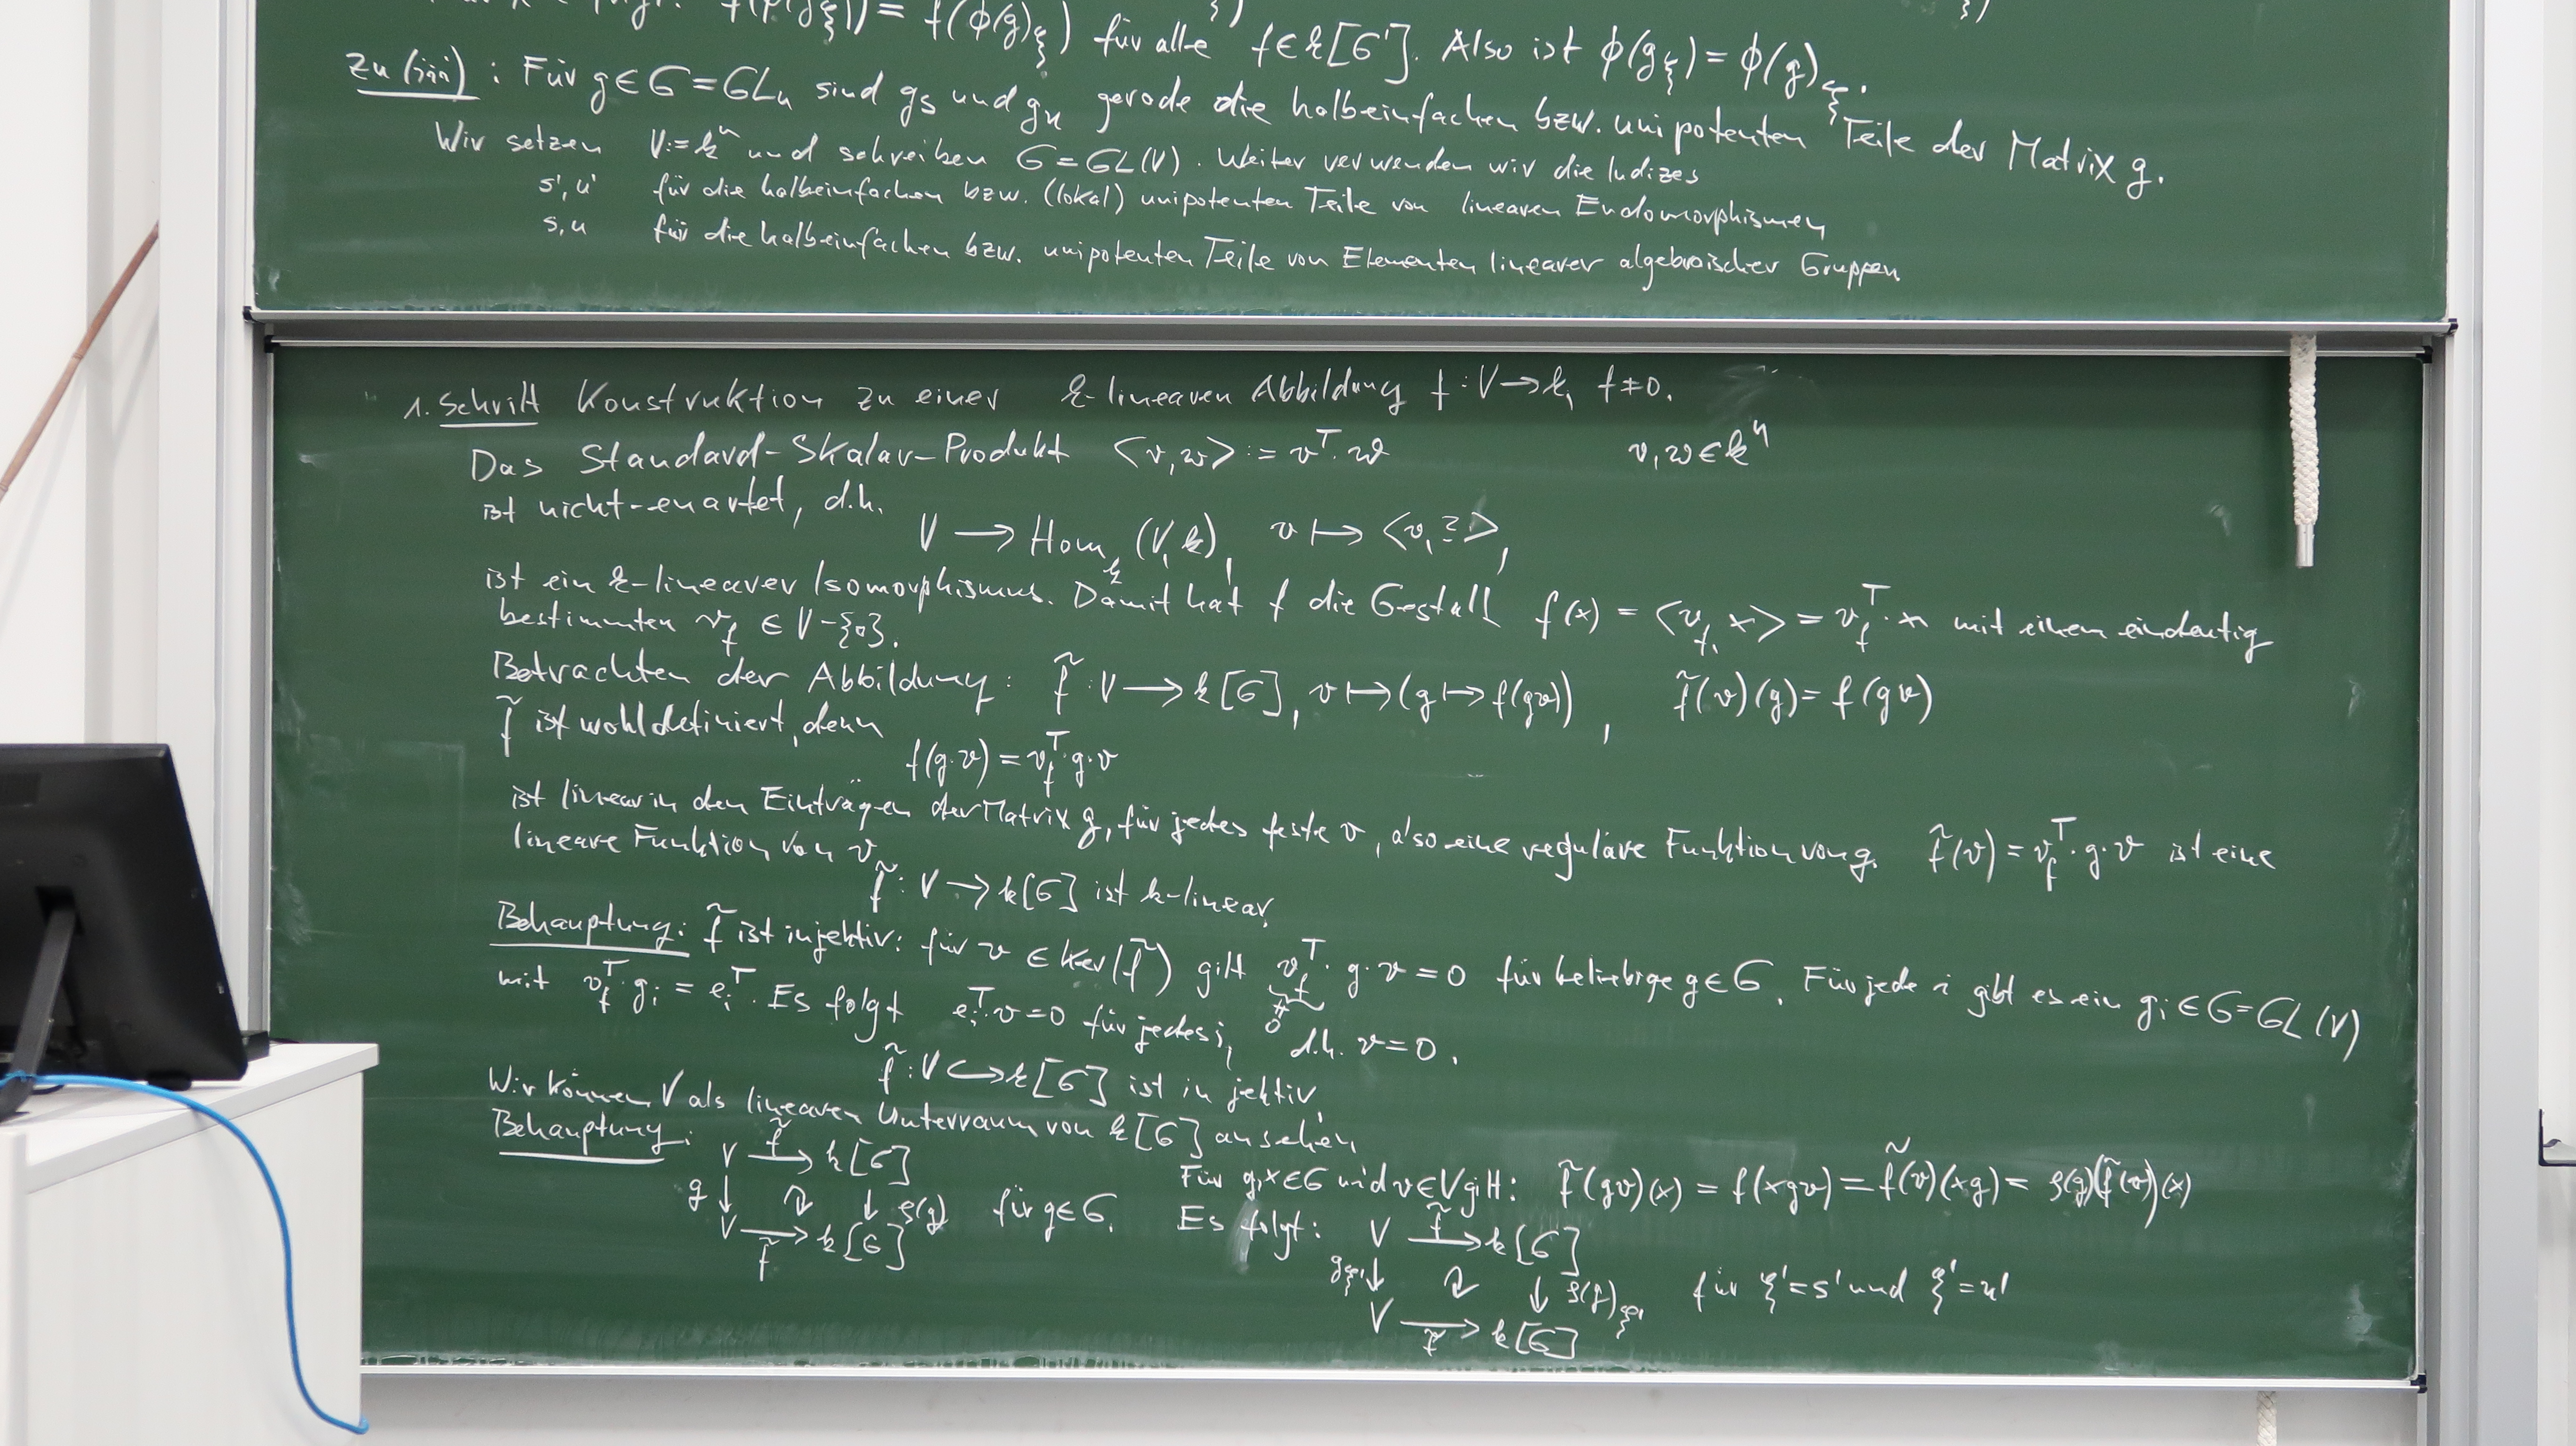 f(φ(g_ξ)) = f(φ(g)_ξ) für alle f∈k[G']. Also ist φ(g_ξ) = φ(g)_ξ.
Zu (iii): Für g∈G=GL_n sind g_s und g_u gerade die halbeinfachen bzw. unipotenten Teile der Matrix g.
Wir setzen V:=k^n und schreiben G=GL(V). Weiter verwenden wir die Indizes
s', u' für die halbeinfachen bzw. (lokal) unipotenten Teile von linearen Endomorphismen
s, u für die halbeinfachen bzw. unipotenten Teile von Elementen linearer algebraischer Gruppen
1. Schritt Konstruktion zu einer k-linearen Abbildung f:V→k, f≠0.
Das Standard-Skalar-Produkt <v,w> := v^T·w v,w∈k^n
ist nicht-enartet, d.h.
V → Hom_k(V,k), v ↦ <v,?>,
ist ein k-linearer Isomorphismus. Damit hat f die Gestalt f(x) = <v_f, x> = v_f^T·x mit einem eindeutig
bestimmten v_f ∈ V-{0}.
Betrachten der Abbildung: f̃:V → k[G], v↦(g↦f(gv)), f̃(v)(g) = f(gv)
f̃ ist wohldefiniert, denn
f(g·v) = v_f^T·g·v
ist linear in den Einträgen der Matrix g, für jedes feste v, also eine reguläre Funktion von g. f̃(v) = v_f^T·g·v ist eine
lineare Funktion von v
f̃:V→k[G] ist k-linear.
Behauptung: f̃ ist injektiv: für v∈Ker(f̃) gilt v_f^T·g·v=0 für beliebige g∈G. Für jede i gibt es ein g_i∈G=GL(V)
≠
0
mit v_f^T·g_i = e_i^T. Es folgt e_i^T·v=0 für jedes i, d.h. v=0.
f̃:V↪k[G] ist injektiv
Wir können V als linearen Unterraum von k[G] ansehen.
Behauptung: V →^f̃ k[G]
g↓ ↻ ↓ρ(g) für g∈G.
V →_f̃ k[G]
Für g,x∈G und v∈V gilt: f̃(gv)(x) = f(xgv) = f̃(v)(xg) = ρ(g)(f̃(v))(x)
Es folgt: V →^f̃ k[G]
g_ξ'↓ ↻ ↓ρ(g)_ξ' für ξ'=s' und ξ'=u'
V →_f̃ k[G]